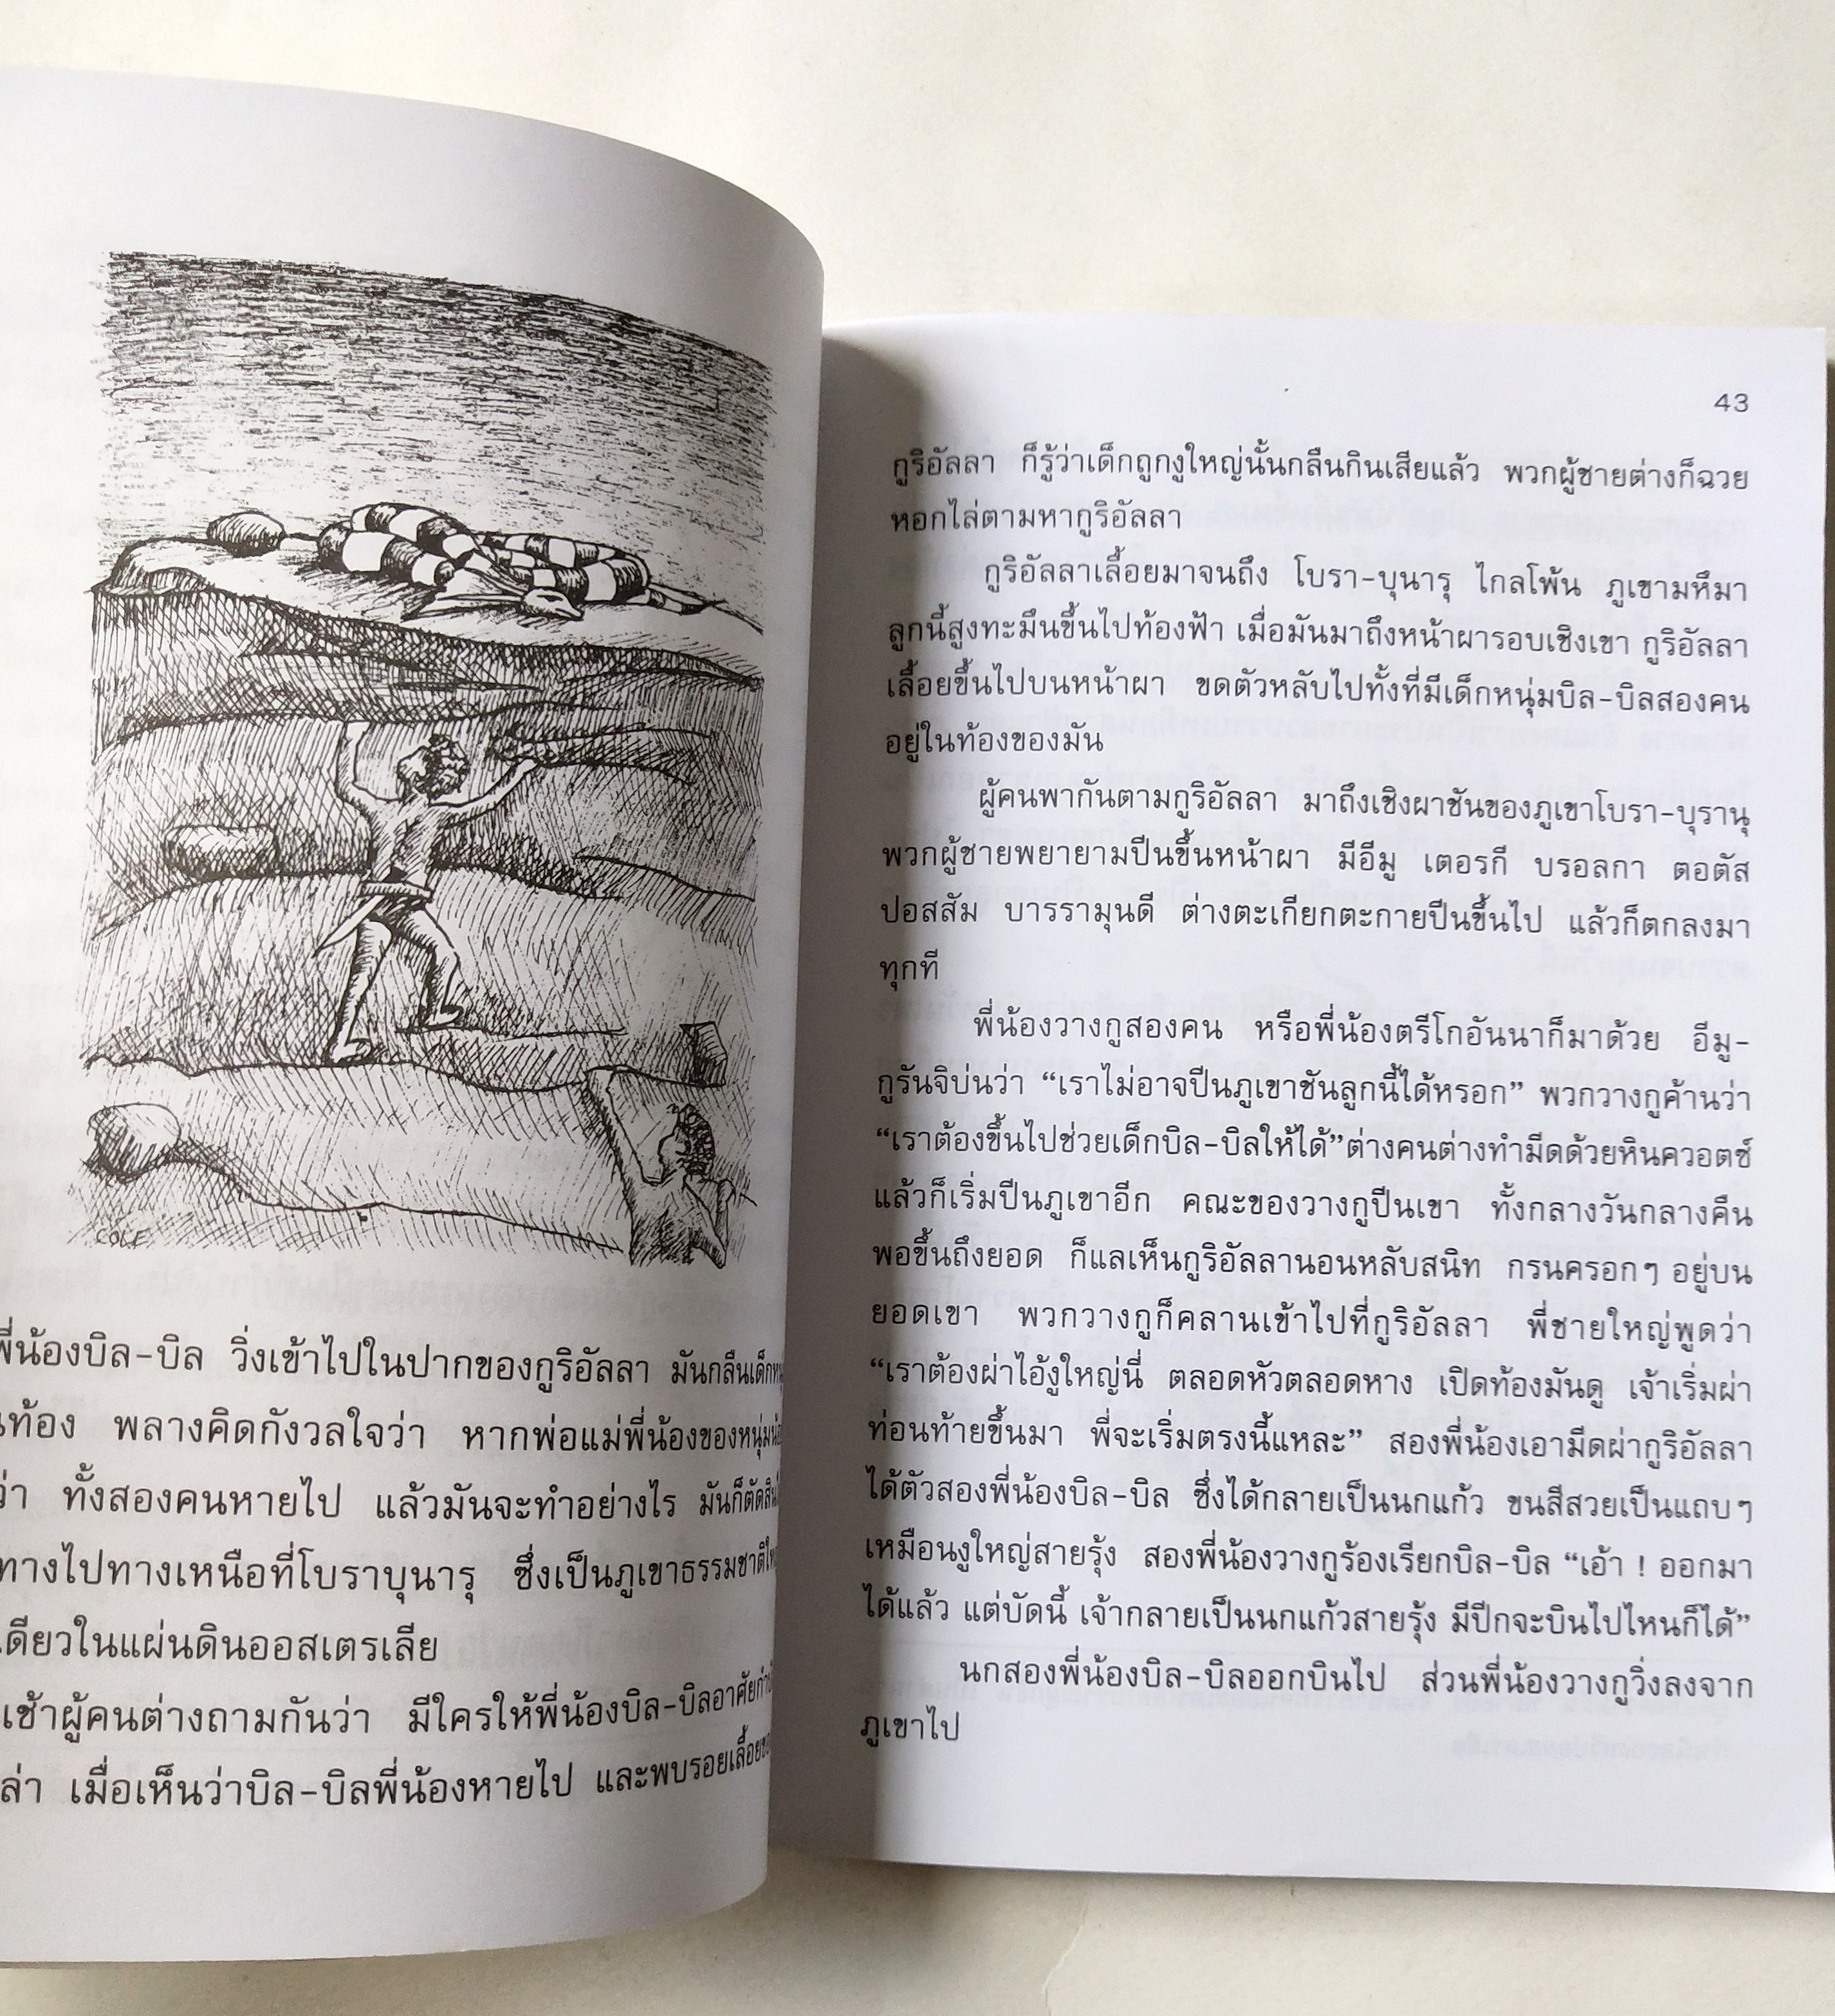 COLE
พี่น้องบิล-บิล วิ่งเข้าไปในปากของกูริอัลลา มันกลืนเด็ก
ท้อง พลางคิดกังวลใจว่า หากพ่อแม่พี่น้องของหนุ่ม
ว่า ทั้งสองคนหายไป แล้วมันจะทำอย่างไร มันก็ตัดสิน
ทางไปทางเหนือที่โบราบุนารุ ซึ่งเป็นภูเขาธรรมชาติ
เดียวในแผ่นดินออสเตรเลีย
เช้าผู้คนต่างถามกันว่า มีใครให้พี่น้องบิล-บิลอาศัย
ล่า เมื่อเห็นว่าบิล-บิลพี่น้องหายไป และพบรอยเลื้อย
43
กูริอัลลา ก็รู้ว่าเด็กถูกงูใหญ่นั้นกลืนกินเสียแล้ว พวกผู้ชายต่างก็ฉวย
หอกไล่ตามหากูริอัลลา
กูริอัลลาเลื้อยมาจนถึง โบรา-บุนารุ ไกลโพ้น ภูเขามหึมา
ลูกนี้สูงทะมึนขึ้นไปท้องฟ้า เมื่อมันมาถึงหน้าผารอบเชิงเขา กูริอัลลา
เลื้อยขึ้นไปบนหน้าผา ขดตัวหลับไปทั้งที่มีเด็กหนุ่มบิล-บิลสองคน
อยู่ในท้องของมัน
ผู้คนพากันตามกูริอัลลา มาถึงเชิงผาชันของภูเขาโบรา-บุรานุ
พวกผู้ชายพยายามปีนขึ้นหน้าผา มีอีมู เตอรกี บรอลกา ตอตัส
ปอสสัม บารรามุนดี ต่างตะเกียกตะกายปีนขึ้นไป แล้วก็ตกลงมา
ทุกที
พี่น้องวางกูสองคน หรือพี่น้องตรีโกอันนาก็มาด้วย อีมู-
กูรันจิบ่นว่า “เราไม่อาจปีนภูเขาชันลูกนี้ได้หรอก” พวกวางกูค้านว่า
“เราต้องขึ้นไปช่วยเด็กบิล-บิลให้ได้”ต่างคนต่างทำมีดด้วยหินควอตซ์
แล้วก็เริ่มปีนภูเขาอีก คณะของวางกูปีนเขา ทั้งกลางวันกลางคืน
พอขึ้นถึงยอด ก็แลเห็นกูริอัลลานอนหลับสนิท กรนครอกๆ อยู่บน
ยอดเขา พวกวางกูก็คลานเข้าไปที่กูริอัลลา พี่ชายใหญ่พูดว่า
“เราต้องผ่าไอ้งูใหญ่นี่ ตลอดหัวตลอดหาง เปิดท้องมันดู เจ้าเริ่มผ่า
ท่อนท้ายขึ้นมา พี่จะเริ่มตรงนี้แหละ” สองพี่น้องเอามีดผ่ากูริอัลลา
ได้ตัวสองพี่น้องบิล-บิล ซึ่งได้กลายเป็นนกแก้ว ขนสีสวยเป็นแถบๆ
เหมือนงูใหญ่สายรุ้ง สองพี่น้องวางกูร้องเรียกบิล-บิล “เอ้า ! ออกมา
ได้แล้ว แต่บัดนี้ เจ้ากลายเป็นนกแก้วสายรุ้ง มีปีกจะบินไปไหนก็ได้”
นกสองพี่น้องบิล-บิลออกบินไป ส่วนพี่น้องวางกูวิ่งลงจาก
ภูเขาไป